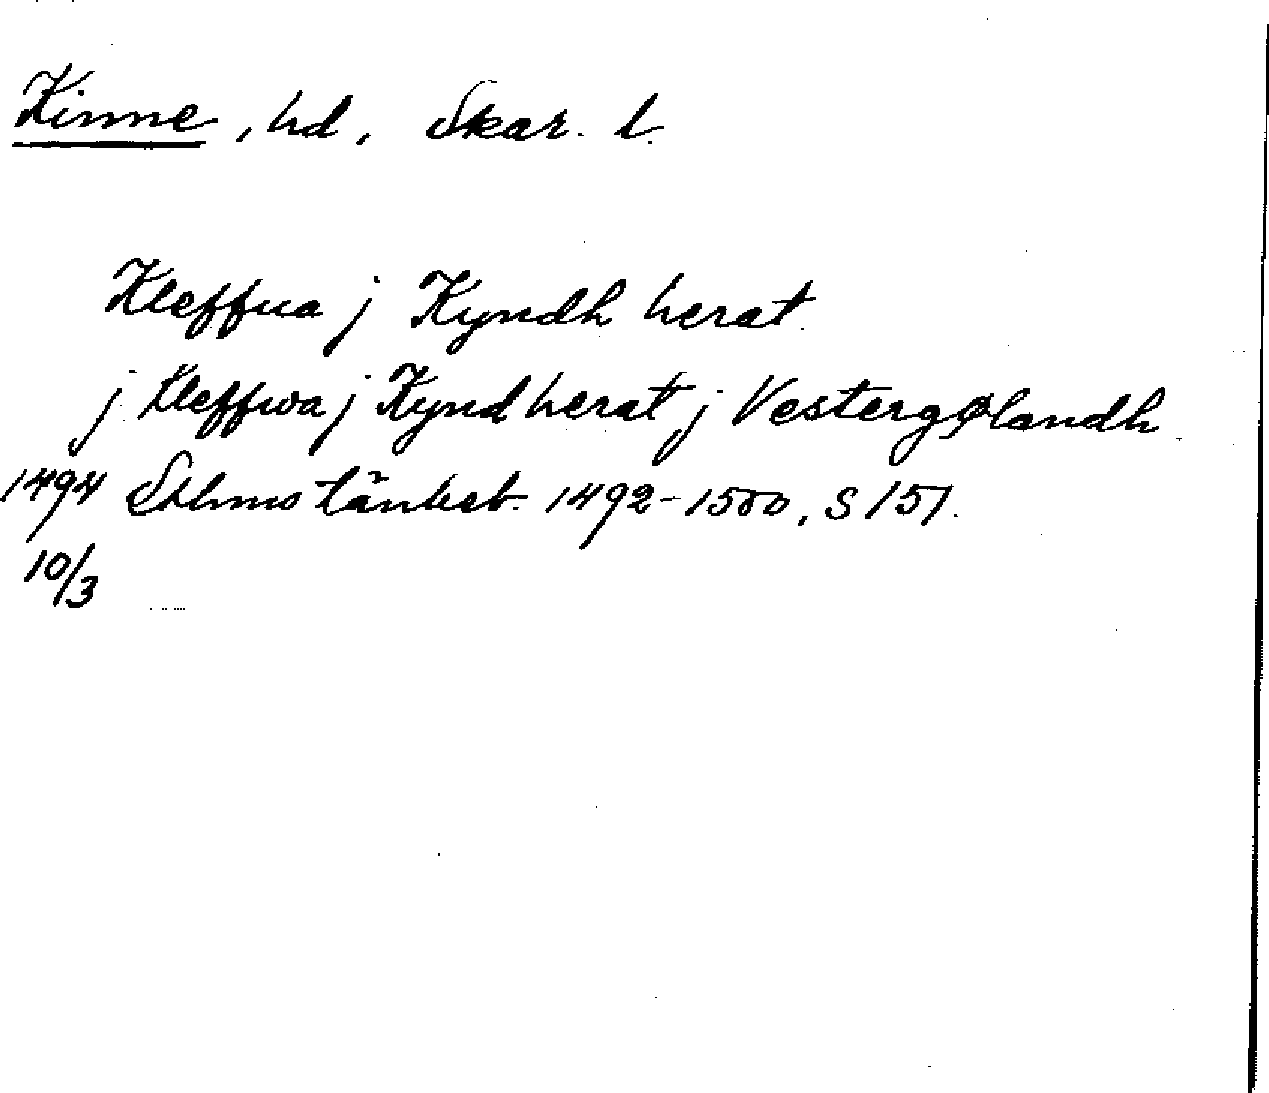 Kinne, hd, Skar. l.
Kleffua j Kyndh herat.
j Kleffwa j Kynd herat j Vestergølandh
1494 Sthms tänkeb. 1492-1500, S 151.
10/3